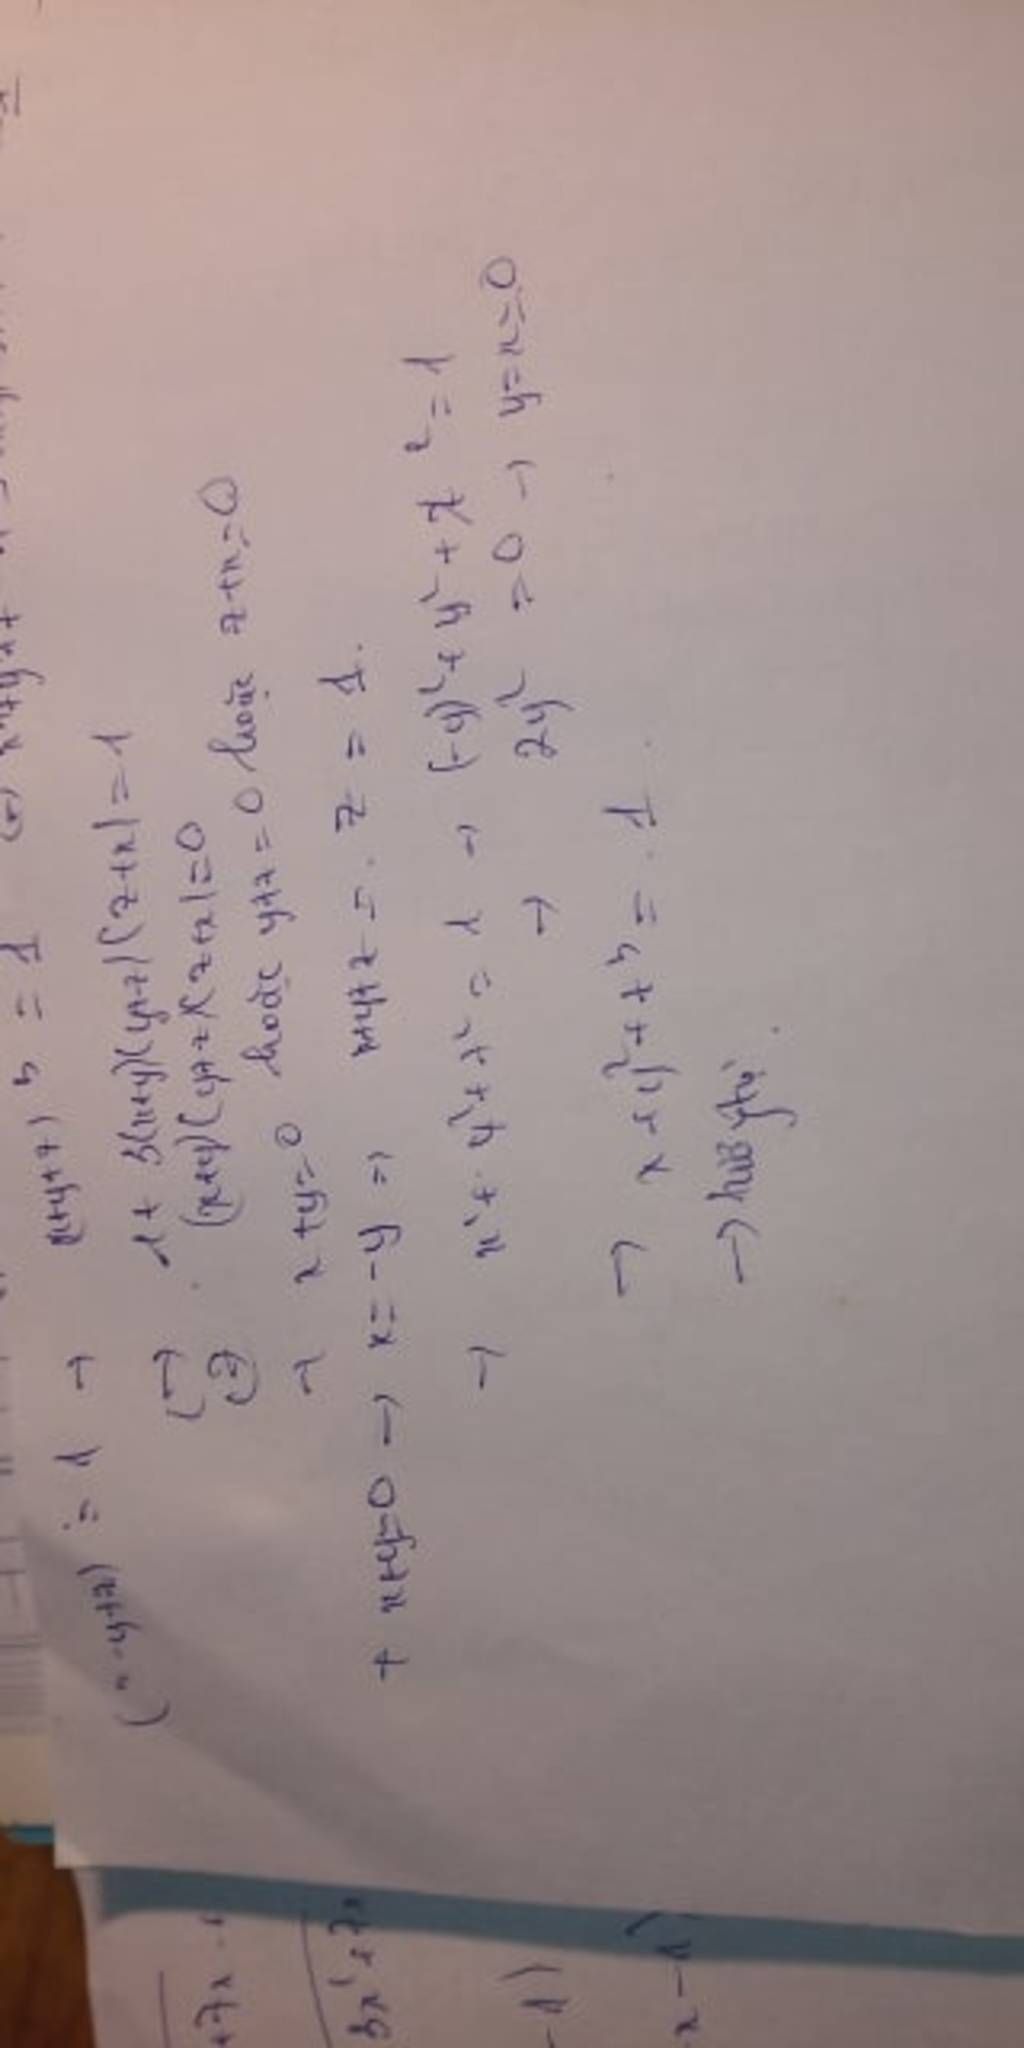 (x+y+z)³ = 1 → (x+y+z)³ = 1
(→) 1 + 3(x+y)(y+z)(z+x) = 1
(→) (x+y)(y+z)(z+x) = 0
→ x+y=0 hoặc y+z=0 hoặc z+x=0
+ x+y=0 → x=-y ⇒ x+y+z = z = 1.
→ x²+y²+z² = 1 → (-y)²+y²+z² = 1
→ 2y² = 0 → y=x=0
→ x+y²+z³ = 1
→
+7x
3x²+7x
-1)
x-1)